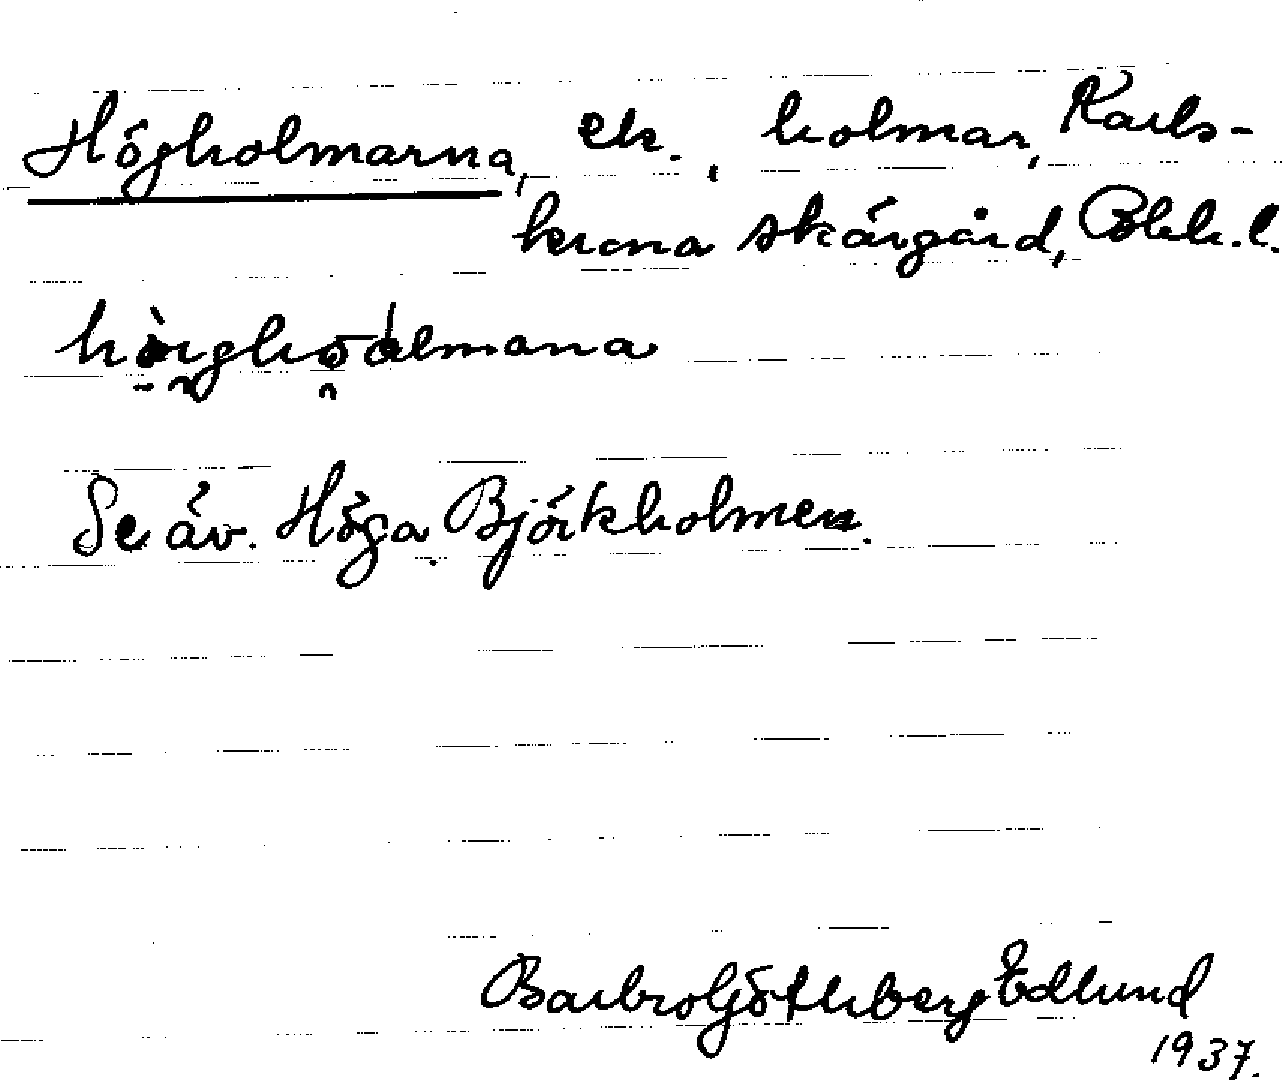 Högholmarna, ek., holmar, Karls-
krona skärgård, Blek. l.
Se äv. Höga Björkholmen.
Barbro Göthberg Edlund
1937.